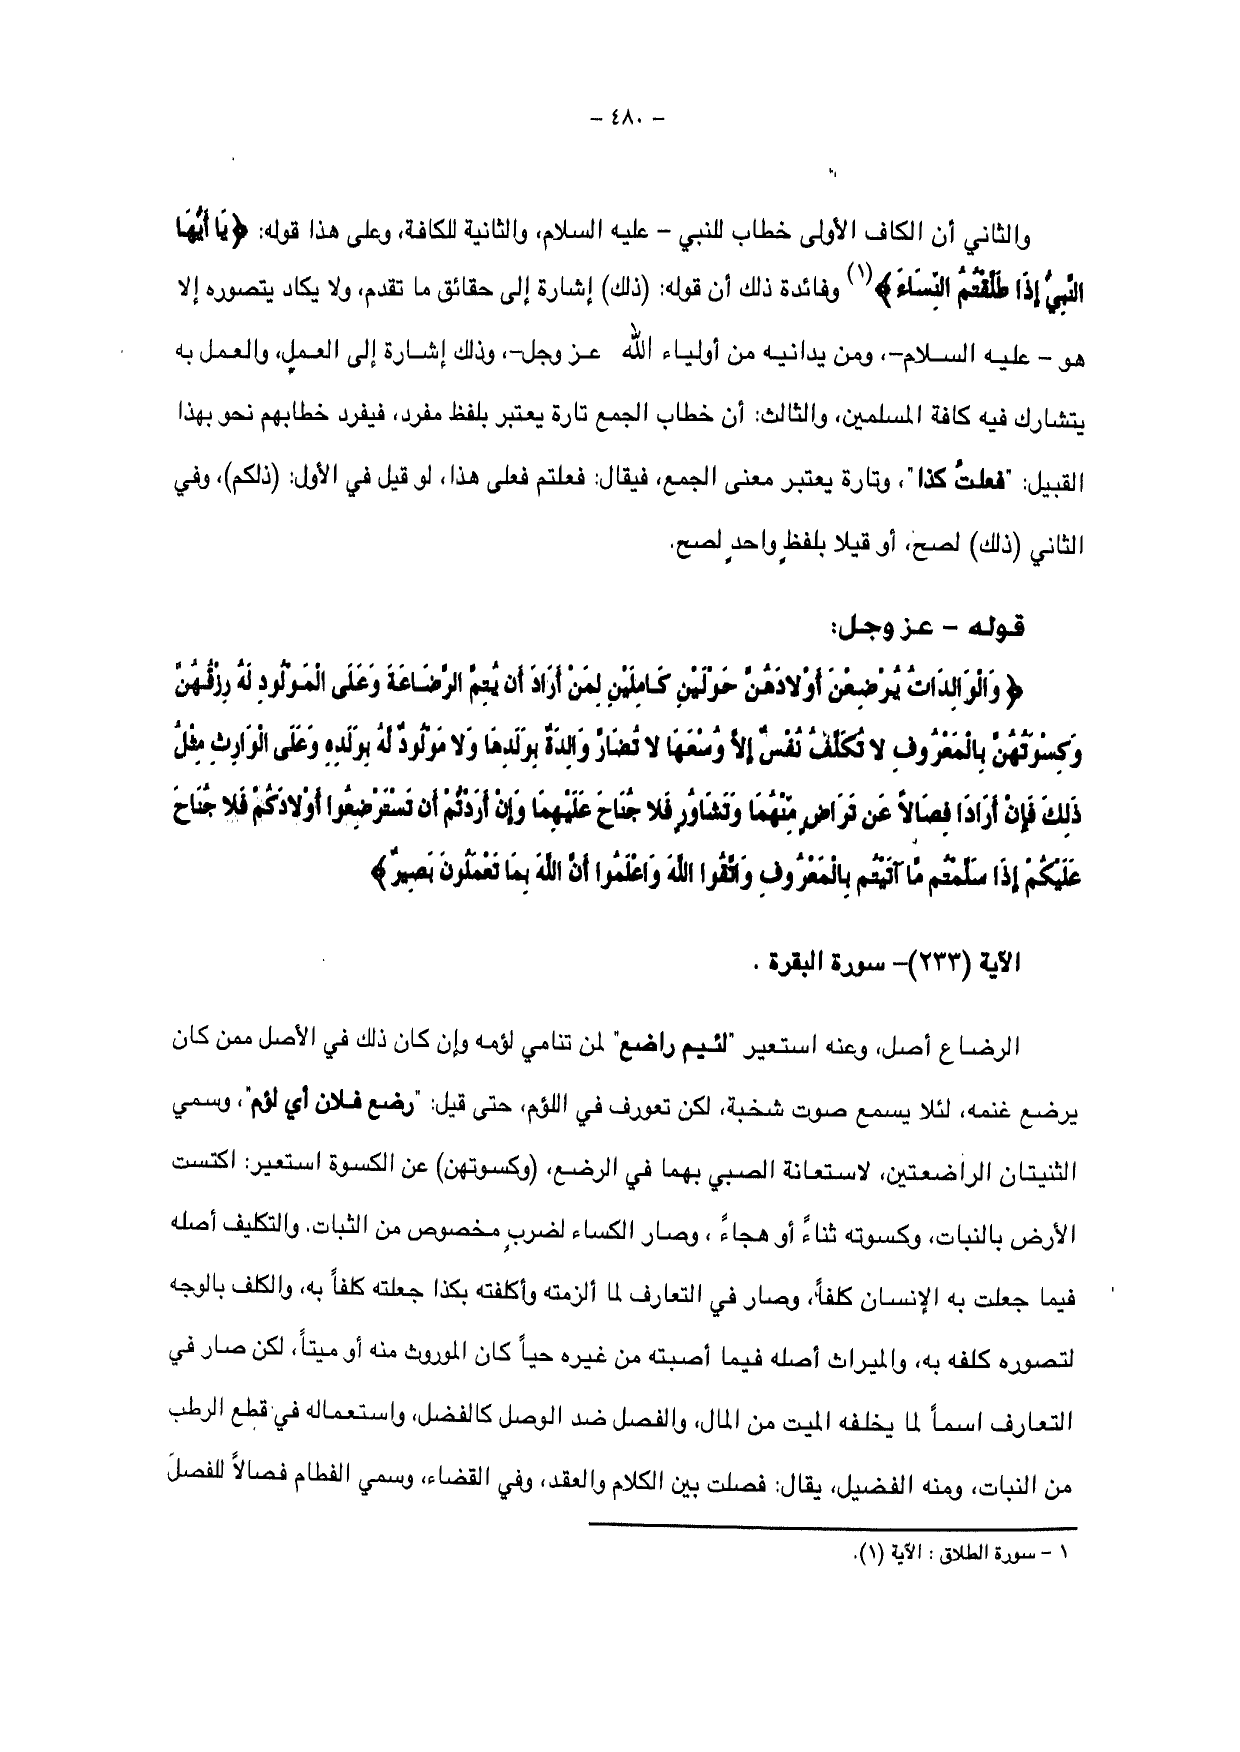 - ٤٨٠ -
والثاني أن الكاف الأولى خطاب للنبي - عليه السلام، والثانية للكافة، وعلى هذا قوله: ﴿يَا أَيُّهَا
النَّبِيُّ إِذَا طَلَّقْتُمُ النِّسَاءَ﴾(١) وفائدة ذلك أن قوله: (ذلك) إشارة إلى حقائق ما تقدم، ولا يكاد يتصوره إلا
هو - عليه السلام-، ومن يدانيه من أولياء الله عز وجل-، وذلك إشارة إلى العمل، والعمل به
يتشارك فيه كافة المسلمين، والثالث: أن خطاب الجمع تارة يعتبر بلفظ مفرد، فيفرد خطابهم نحو بهذا
القبيل: "فعلتُ كذا"، وتارة يعتبر معنى الجمع، فيقال: فعلتم فعلى هذا، لو قيل في الأول: (ذلكم)، وفي
الثاني (ذلك) لصح، أو قيلا بلفظٍ واحدٍ لصح.
قوله - عز وجل:
﴿وَالْوَالِدَاتُ يُرْضِعْنَ أَوْلادَهُنَّ حَوْلَيْنِ كَامِلَيْنِ لِمَنْ أَرَادَ أَن يُتِمَّ الرَّضَاعَةَ وَعَلَى الْمَوْلُودِ لَهُ رِزْقُهُنَّ
وَكِسْوَتُهُنَّ بِالْمَعْرُوفِ لا تُكَلَّفُ نَفْسٌ إِلاَّ وُسْعَهَا لا تُضَارَّ وَالِدَةٌ بِوَلَدِهَا وَلا مَوْلُودٌ لَهُ بِوَلَدِهِ وَعَلَى الْوَارِثِ مِثْلُ
ذَلِكَ فَإِنْ أَرَادَا فِصَالاً عَن تَرَاضٍ مِّنْهُمَا وَتَشَاوُرٍ فَلا جُنَاحَ عَلَيْهِمَا وَإِنْ أَرَدْتُمْ أَن تَسْتَرْضِعُوا أَوْلادَكُمْ فَلا جُنَاحَ
عَلَيْكُمْ إِذَا سَلَّمْتُم مَّا آتَيْتُم بِالْمَعْرُوفِ وَاتَّقُوا اللَّهَ وَاعْلَمُوا أَنَّ اللَّهَ بِمَا تَعْمَلُونَ بَصِيرٌ﴾
الآية (٢٣٣)- سورة البقرة .
الرضاع أصل، وعنه استعير "لئيم راضع" لمن تنامي لؤمه وإن كان ذلك في الأصل ممن كان
يرضع غنمه، لئلا يسمع صوت شخبة، لكن تعورف في اللؤم، حتى قيل: "رضع فلان أي لؤم"، وسمي
الثنيتان الراضعتين، لاستعانة الصبي بهما في الرضع، (وكسوتهن) عن الكسوة استعير: اكتست
الأرض بالنبات، وكسوته ثناءً أو هجاءً ، وصار الكساء لضربٍ مخصوص من الثبات. والتكليف أصله
فيما جعلت به الإنسان كلفاً، وصار في التعارف لما ألزمته وأكلفته بكذا جعلته كلفاً به، والكلف بالوجه
لتصوره كلفه به، والميراث أصله فيما أصبته من غيره حياً كان الموروث منه أو ميتاً، لكن صار في
التعارف اسماً لما يخلفه الميت من المال، والفصل ضد الوصل كالفضل، واستعماله في قطع الرطب
من النبات، ومنه الفضيل، يقال: فصلت بين الكلام والعقد، وفي القضاء، وسمي الفطام فصالاً للفصلَ
١ - سورة الطلاق : الآية (١).